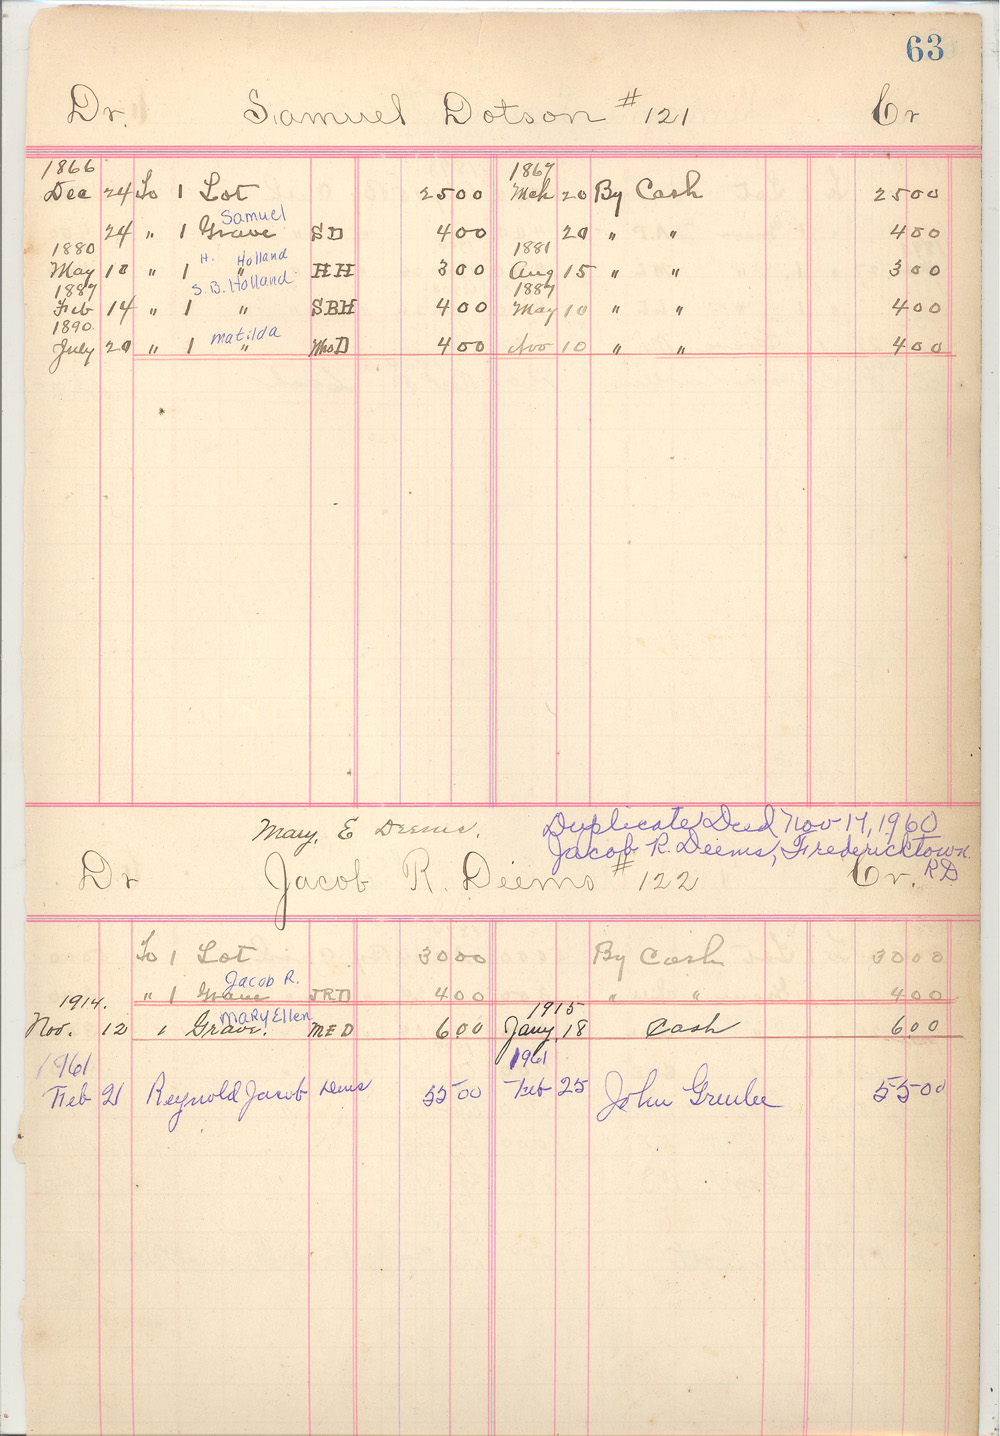 63
Dr. Samuel Dotson #121 Cr
1866 1867
Dec 24 To 1 Lot 2500 Mch 20 By Cash 2500
Samuel
24 " 1 Grave SD 400 20 " " 400
1880 H. Holland 1881
May 18 " 1 " HH 300 Aug 15 " " 300
1887 S.B. Holland 1887
Feb 14 " 1 " SBH 400 May 10 " " 400
1890 matilda
July 20 " 1 " Mrs D 400 Nov 10 " " 400
Mary, E Deems. Duplicate Deed Nov 17, 1960
Jacob R. Deems, Fredericktown
RD
Dr Jacob R. Deems #122 Cr.
To 1 Lot 3000 By Cash 3000
Jacob R.
" 1 Grave JRD 400 " " 400
1914. MARY Ellen 1915
Nov. 12 1 Grave. MED 600 Jany 18 Cash 600
1961 1961
Feb 21 Reynold Jacob Deems 5500 Feb 25 John Greenlee 5500